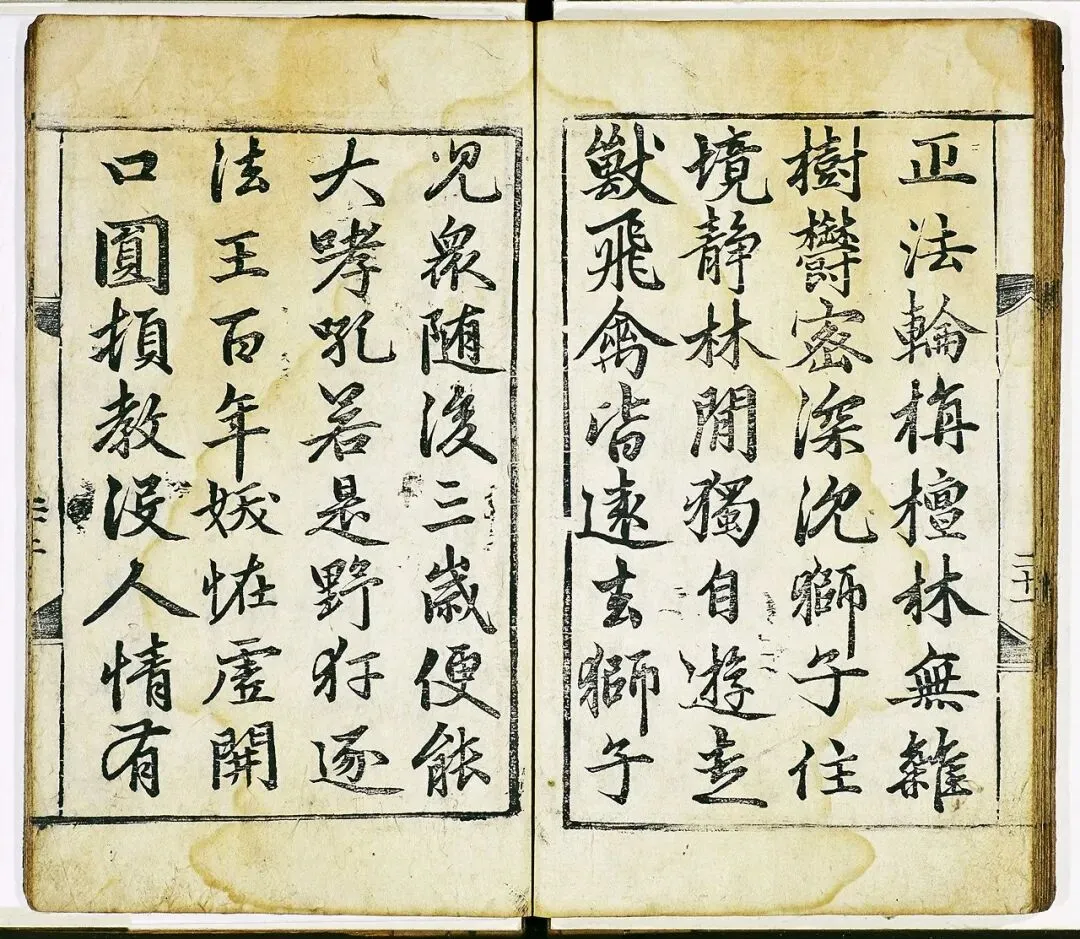 正法輪栴檀林無雜
樹欝密深沉獅子住
境静林閒獨自遊走
獸飛禽皆遠去獅子
二十一
兒衆随後三歳便能
大哮吼若是野犴逐
法王百年妖恠虛開
口圓頓教沒人情有